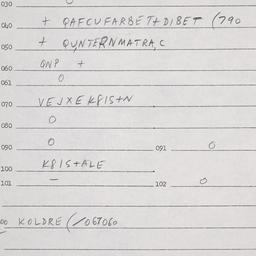 030
040 + QAFCUFARBET+DIBET (790
050 + QYNTERNMATRA,C
060 GNP +
061 0
070 VEJXEK8IS+N
080 0
090 0 091 0
100 K8IS+ALE
101 — 102 0
00 KOLDRE (/067060